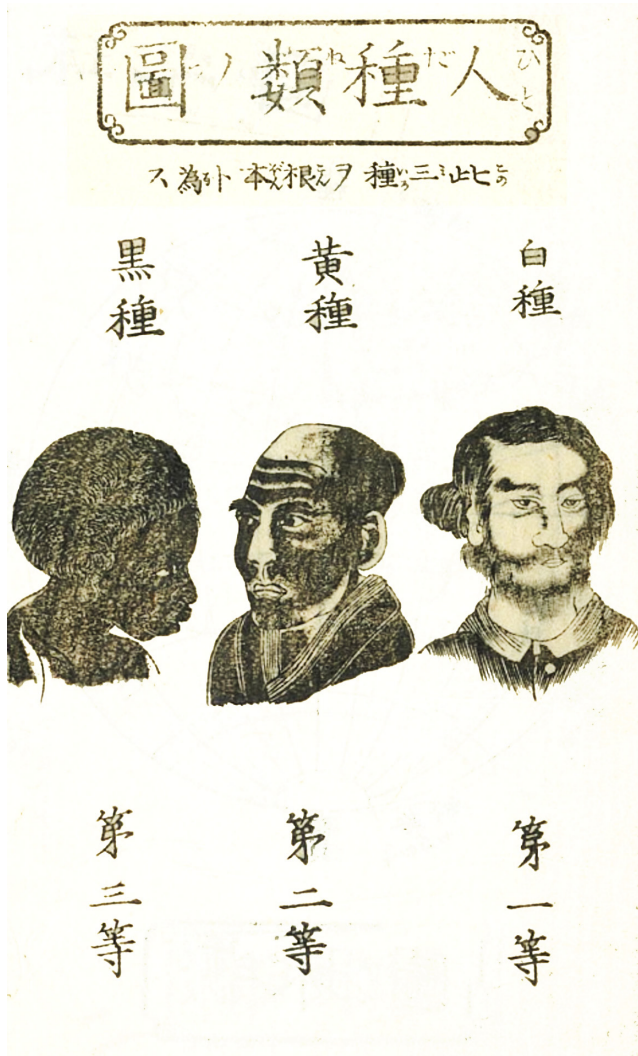 人種類ノ圖
此三種ヲ根本ト為ス
白種
黄種
黒種
第一等
第二等
第三等